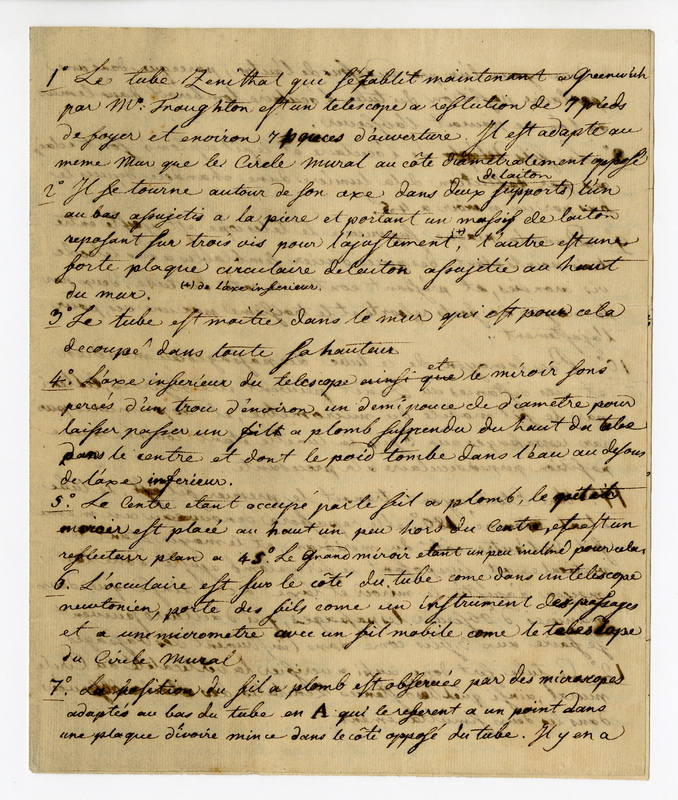 1° Le tube Zenithal qui s'etablit maintenant a Greenwich
par Mr. Troughton est un telescope a reflection de 7 pieds
de foyer et environ 7 pouces d'ouverture. Il est adapté au
meme mur que le Circle Mural au côté diametralement opposé
2° Il se tourne autour de son axe dans deux supports l'un
de laiton
au bas assujetis a la piere et portant un massif de laiton
reposant sur trois vis pour l'ajustement, (+) l'autre est une
forte plaque circulaire de laiton assujetie au haut
du mur. (+) de l'axe inferieur.
3° Le tube est moitié dans le mur qui est pour cela
decoupé dans toute sa hauteur
4° L'axe inferieur du telescope ainsi que et le miroir sons
percés d'un trou d'environ un demi pouce de diametre pour
laisser passer un fil a plomb suspendu du haut du tube
dans le centre et dont le poid tombe dans l'eau au desous
de l'axe inferieur.
5° Le Centre etant occupé par le fil a plomb, le petit
miroir est placé au haut un peu hors du Centre, et est un
reflecteur plan a 45° Le Grand miroir etant un peu incliné pour cela
6. L'occulaire est sur le côté du tube come dans un telescope
newtonien, porte des fils come un instrument des passages
et a un micrometre avec un fil mobile come le telescope
du Circle Mural
7° La position du fil a plomb est observée par des microscopes
adaptés au bas du tube en A qui le referent a un point dans
une plaque d'ivoire mince dans le côté opposé du tube. Il y en a